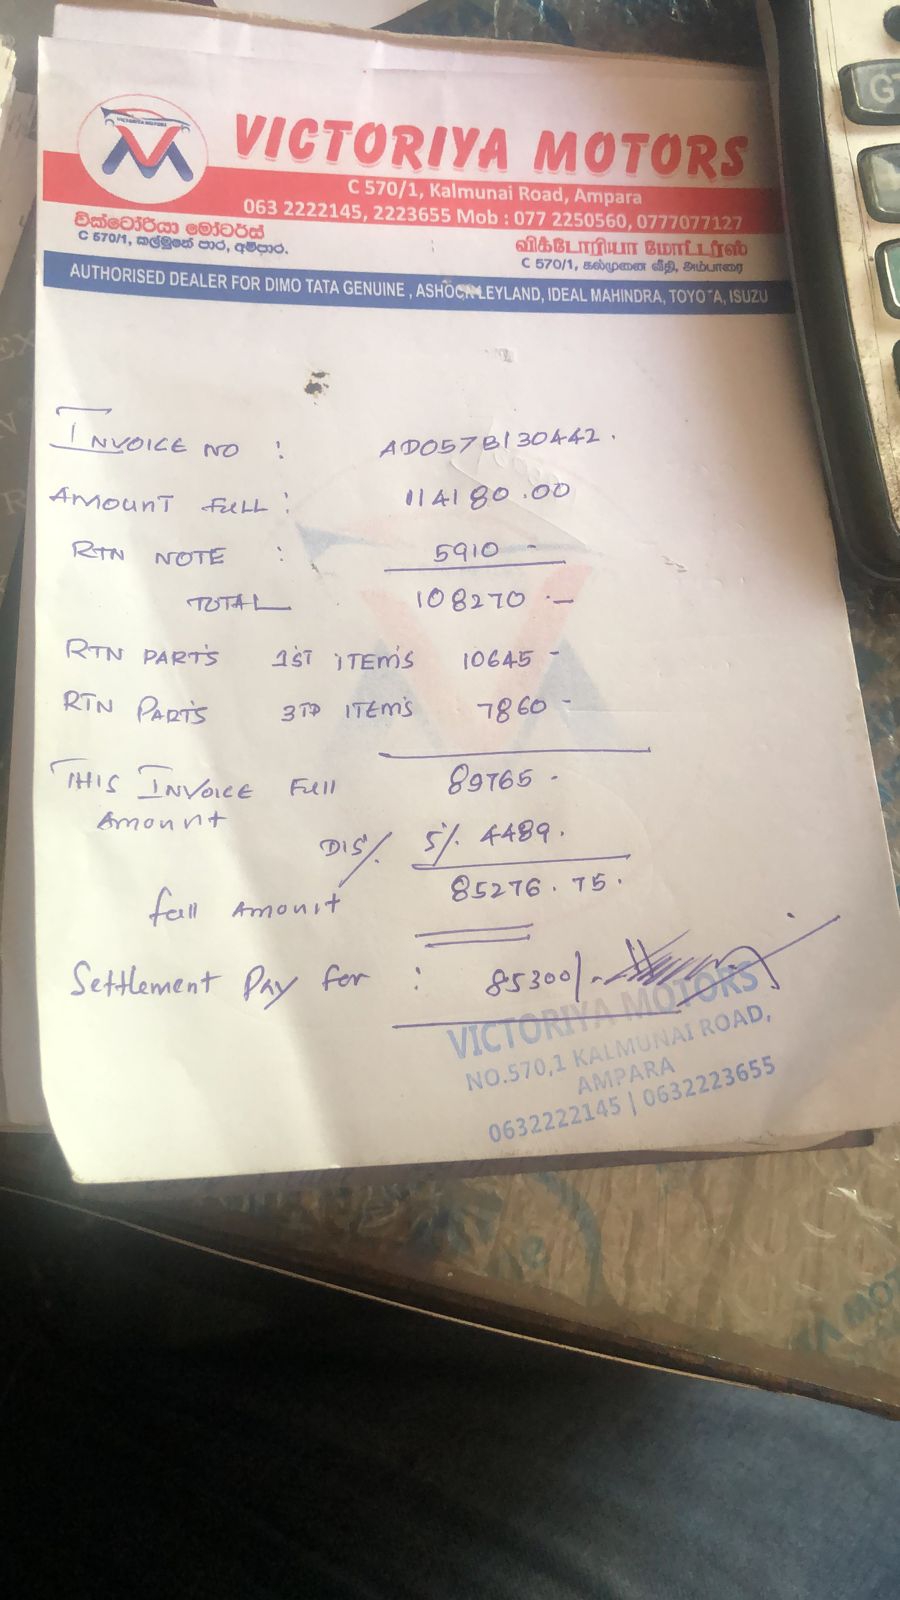 VICTORIYA MOTORS
VICTORIYA MOTORS
C 570/1, Kalmunai Road, Ampara
063 2222145, 2223655 Mob : 077 2250560, 0777077127
වික්ටෝරියා මෝටර්ස්
C 570/1, කල්මුනේ පාර, අම්පාර.
விக்டோரியா மோட்டர்ஸ்
C 570/1, கல்முனை வீதி, அம்பாரை
AUTHORISED DEALER FOR DIMO TATA GENUINE , ASHOCK LEYLAND, IDEAL MAHINDRA, TOYOTA, ISUZU
INVOICE NO : AD057B130442.
AMOUNT FULL : 114180.00
RTN NOTE : 5910 -
TOTAL 108270 .-
RTN PARTS 1ST ITEMS 10645 -
RTN PARTS 3TD ITEMS 7860 -
THIS INVOICE Full 89765 -
Amount
DIS/. 5/. 4489.
full AMOUNT 85276.75.
Settlement PAY for : 85300/-
VICTORIYA MOTORS
NO.570,1 KALMUNAI ROAD,
AMPARA
0632222145 | 0632223655
GT